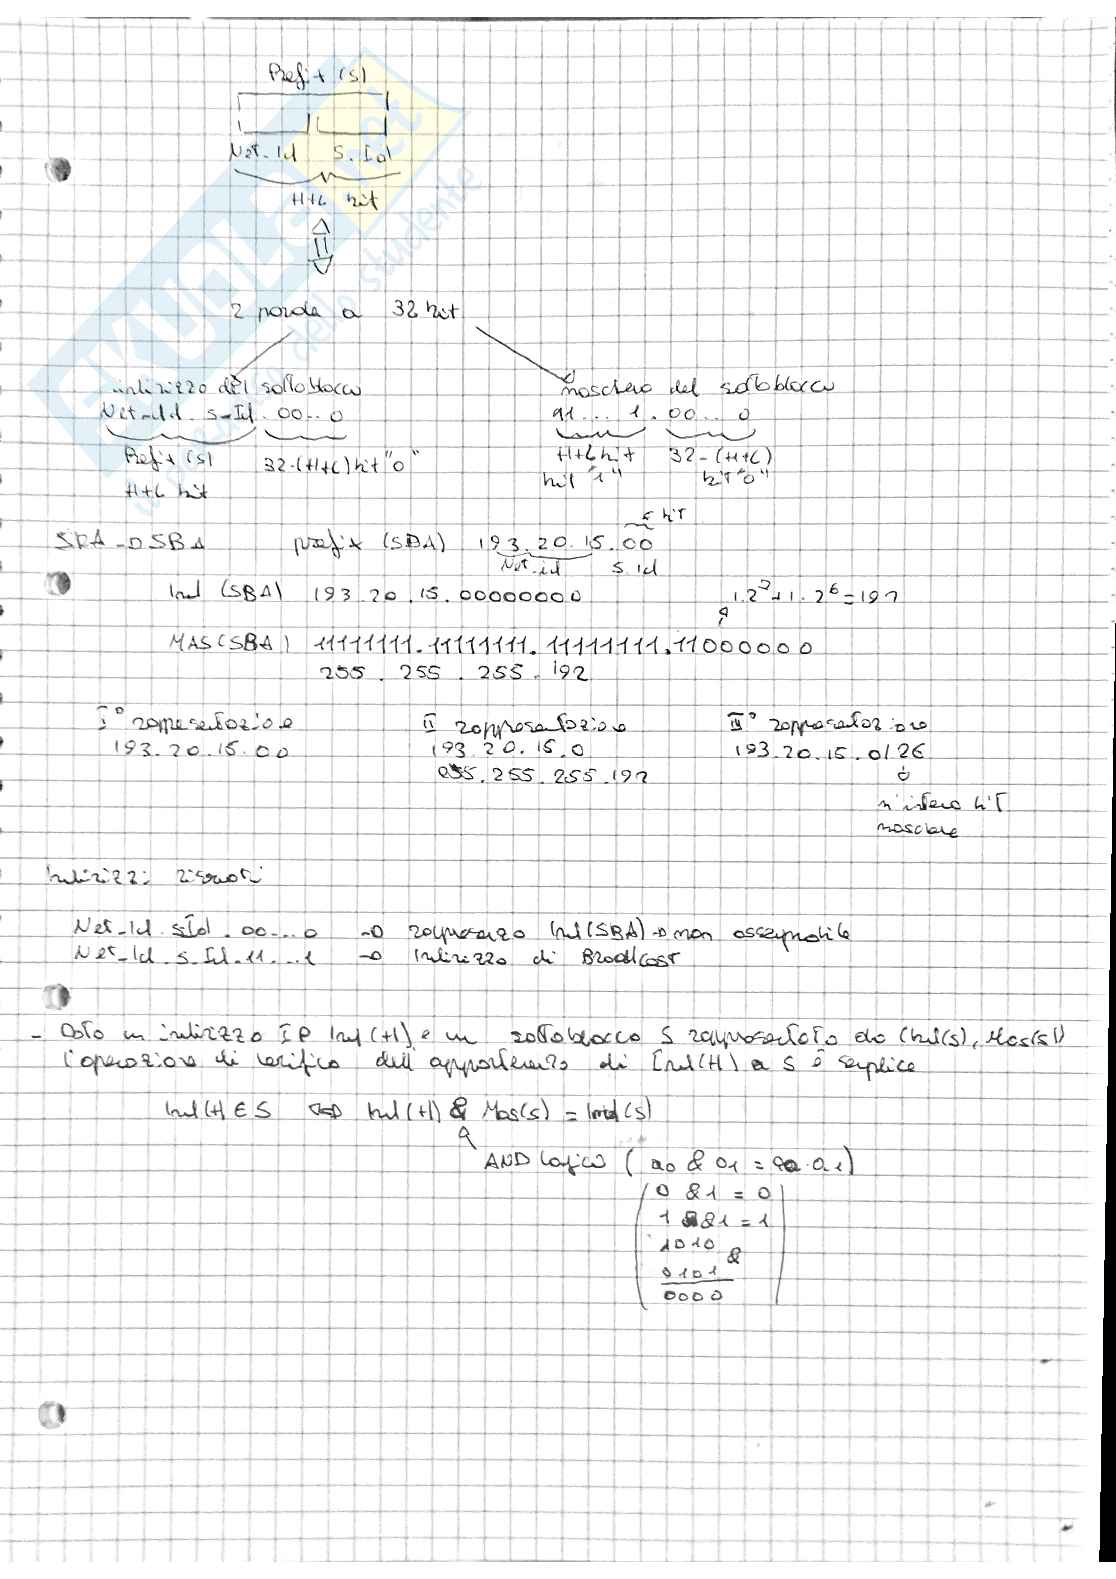 Prefix (s)
Net-Id S.Id
H+L bit
2 parole a 32 bit
indirizzo del sottoblocco
maschera del sottoblocco
Net-Id. S-Id. 00...0
11...1.00...0
Prefix (s)
H+L bit
32-(H+L) bit "0"
H+L bit
bit "1"
32-(H+L)
bit "0"
bit
SBA prefix (SBA) 193.20.15.00
Net-id S.id
Ind (SBA) 193.20.15.00000000
1.2⁷+1.2⁶=192
MAS(SBA) 11111111.11111111.11111111.11000000
255.255.255.192
I° rappresentazione
193.20.15.00
II rappresentazione
193.20.15.0
255.255.255.192
III° rappresentazione
193.20.15.0/26
n° intero bit
maschera
Indirizzi riservati
Net-Id.SId.00...0 → rappresenta Ind(SBA) → non assegnabile
Net-Id.S.Id.11...1 → Indirizzo di Broadcast
- Dato un indirizzo IP Ind(H) e un sottoblocco S rappresentato da (Ind(s), Mas(s))
l'operazione di verifica dell'appartenenza di Ind(H) a S è semplice
Ind(H) ∈ S ⇔ Ind(H) & Mas(s) = Ind(s)
AND logico (a0 & a1 = a0.a1)
0 & 1 = 0
1 & 1 = 1
1010
&
0101
0000